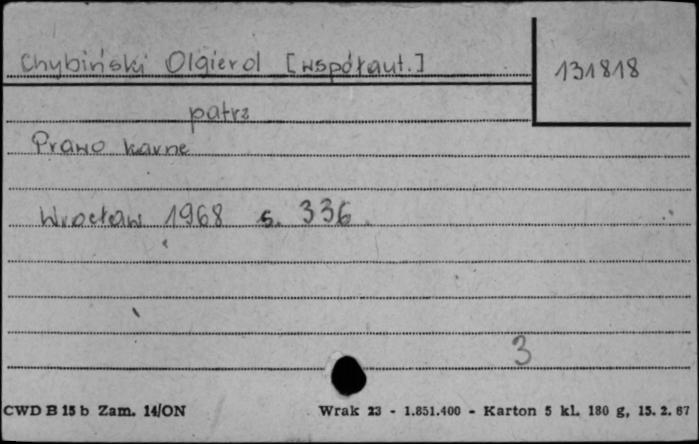 Chybiński Olgierd [współaut.]
131818
patrz
Prawo karne
Wrocław 1968 s. 336
3
CWD B 15 b Zam. 14/ON
Wrak 23 - 1.851.400 - Karton 5 kl. 180 g, 15. 2. 67